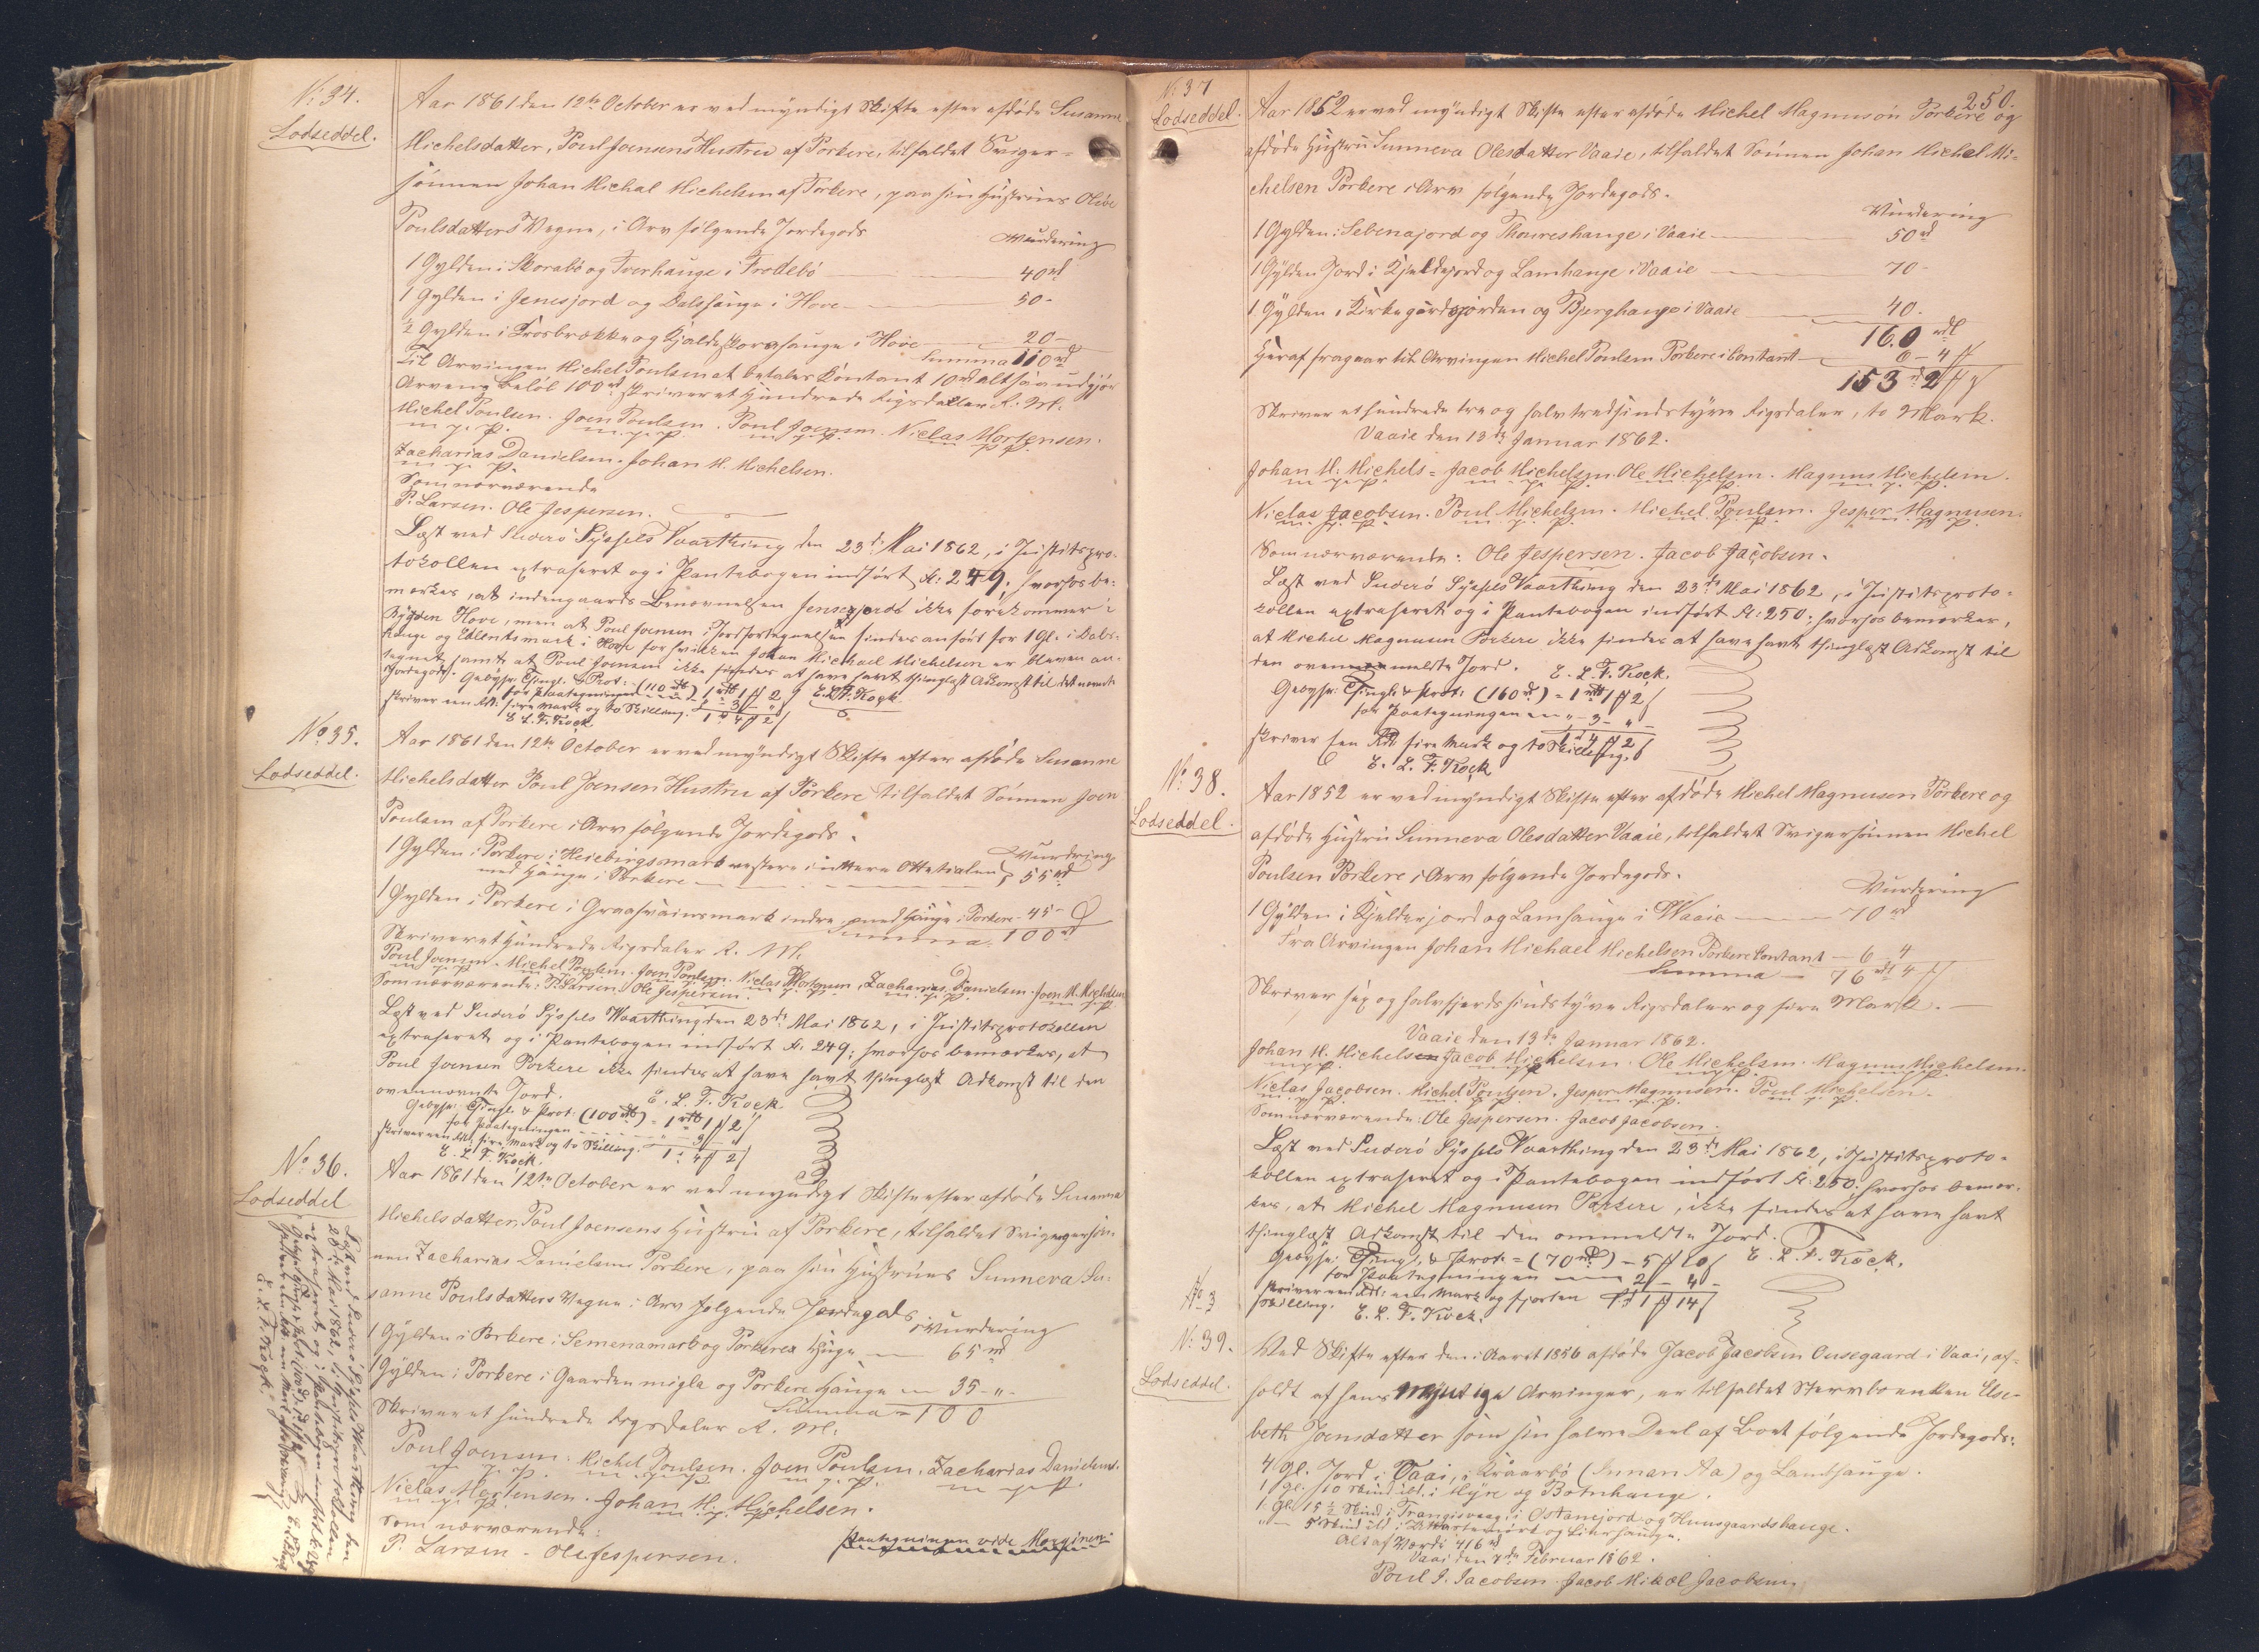 No: 34.
Lodseddel.
Aar 1861 den 12te October er ved myndigt Skifte efter afdøde Susanne
Michelsdatter, Poul Joensens Hustru af Porkere, tilfaldet Sviger-
sönnen Johan Michal Michelsen af Porkere, paa sin Hustrues Olive
Poulsdatters Vegne, i Arv følgende Jordegods
Vurdering
1 Gylden i Skorabö og Tverhauge i Frodebö 40 rd
1 Gylden i Jenesjord og Dalshauge i Hove 50 -
½ Gylden i Frosbrekke og Kjaldeskorahauge i Hove 20 -
Summa 110 rd
Til Arvingen Michel Poulsen at betales Contant 10 rd altsaa udgjör
Arvens Belöb 100 rd skriver et Hundrede Rigsdaler R. M.
Michel Poulsen. Joen Poulsen. Poul Joensen. Niclas Mortensen.
m. p. p. m. p. p. m. p. p. p. p.
Zacharias Danielsen. Johan M. Michelsen.
m. p. p.
Som nærværende
P. Larsen. Ole Jespersen.
Læst ved Suderö Syssels Vaarthing den 23de Mai 1862, i Justitspro-
tokollen extraheret og i Pantebogen indført fol: 249; hvorhos be-
mærkes, at indengaards Benævnelsen Jensesjord ikke forekommer i
Bygden Hove, men at Poul Joensen i Jordfortegnelsen findes anført for 1 Gl. i Dals-
hauge og Eklentsmark i Hove for hvilken Johan Michael Michelsen er bleven an-
tegnet samt at Poul Joensen ikke findes at have havt thinglæst Adkomst til det nævnte
Jordegods. Gebyhr: Thingl. & Prot: (110 rd) 1 rd 1 ß 2 E. L. F. Kock.
for Paategningen " - 3 - "
skriver een Rd. fire Mark og to Skilling. 1 " 4 ß 2
E. L. F. Kock
No 35.
Lodseddel.
Aar 1861 den 12te October er ved myndigt Skifte efter afdøde Susanne
Michelsdatter Poul Joensen Hustru af Porkere tilfaldet Sönnen Joen
Poulsen af Porkere i Arv følgende Jordegods.
Vurdring
1 Gylden i Porkere i Heiebingsmark vestere i nttere Ottetialen
med Hauge i Porkere 55 rd
1 Gylden i Porkere i Graasvainsmark indre, med Hauge i Porkere - 45 -
Summa: 100 rd
Skriver et Hundrede Rigsdaler R. M.
Poul Joensen. Michel Poulsen. Joen Poulsen. Niclas Mortensen, Zacharias Danielsen. Joen M. Michelsen
Som nærværende: P. Larsen. Ole Jespersen.
Læst ved Suderö Syssels Vaarthing den 23de Mai 1862, i Justitsprotokollen
extraheret og i Pantebogen indført fol. 249; hvorhos bemærkes, at
Poul Joensen Porkere ikke findes at have havt thinglæst Adkomst til den
ovennævnte Jord. E. L. F. Kock
Gebyhr: Thingl. & Prot: (100 rd) = 1 rd 1 ß 2
for Paategningen " - 3 - "
skriver een Rd. fire Mark og to Skilling. 1 " 4 ß 2
E. L. F. Kock.
No 36.
Lodseddel
Aar 1861 den 12te October er ved myndigt Skifte efter afdøde Susanna
Michelsdatter, Poul Joensens Hustru af Porkere, tilfaldet Svigersön-
nen Zacharias Danielsen Porkere, paa sin Hustrues Sunneva Su-
sanne Poulsdatters Vegne i Arv følgende Jordegods
Vurdering
1 Gylden i Porkere i Semenamark og Porkere Hauge 65 rd
1 Gylden i Porkere i Gaarden migla og Porkere Hauge 35 - " -
Summa = 100
Skriver et hundrede Rigsdaler R. M.
Poul Joensen. Michel Poulsen. Joen Poulsen. Zacharias Danielsen.
m. p. p. m. p. p. m. p. p. m. p. p.
Niclas Mortensen. Johan M. Michelsen.
m. p. p. m. p. p.
Som nærværende:
P. Larsen - Ole Jespersen.
Paategningen vide Marginen
Læst ved Suderö Syssels Vaarthing den
23de Mai 1862, i Justitsprotokollen
extraheret og i Pantebogen indført fol. 249
E. L. F. Kock.
250.
No 37
Lodseddel.
Aar 1852 er ved myndigt Skifte efter afdøde Michel Magnusön Porkere og
afdöde Hustru Sunneva Olesdatter Vaaie, tilfaldet Sönnen Johan Michel Mi-
chelsen Porkere i Arv følgende Jordegods.
Vurdering
1 Gylden i Sebenajord og Thoureshauge i Vaaie 50 rd
1 Gylden Jord i Kjeldejord og Lamhauge i Vaaie 70 -
1 Gylden i Kirkegaardsjorden og Bjerghauge i Vaaie 40.
160 rdl
Heraf fragaar til Arvingen Michel Poulsen Porkere i Contant 6 - 4 ß
153 rd 2 ß
Skriver et hundrede tre og halvtredsindstyve Rigsdaler, to Mark.
Vaaie den 13de Januar 1862.
Johan M. Michels= Jacob Michelsen. Ole Michelsen. Magnus Michelsen.
m. p. p. m. p. p. m. p. p. m. p. p.
Niclas Jacobsen. Poul Michelsen. Michel Poulsen. Jesper Magnusen.
m. p. p. m. p. p. m. p. p. m. p. p.
Som nærværende: Ole Jespersen. Jacob Jacobsen.
Læst ved Suderö Syssels Vaarthing den 23de Mai 1862, i Justitsproto-
kollen extraheret og i Pantebogen indført fol: 250; hvorhos bemærkes,
at Michel Magnusen Porkere ikke findes at have havt thinglæst Adkomst til
den ovenmeldte Jord. E. L. F. Kock.
Gebyhr: Thingl. & Prot: (160 rd) = 1 rd 1 ß 2
for Paategningen " - 3 - "
skriver een Rd. fire Mark og to Skilling. 1 " 4 ß 2
E. L. F. Kock
No 38.
Lodseddel.
Aar 1852 er ved myndigt Skifte efter afdøde Michel Magnusen Porkere og
afdöde Hustru Sunneva Olesdatter Vaaie, tilfaldet Svigersönnen Michel
Poulsen Porkere i Arv følgende Jordegods.
Vurdering
1 Gylden i Kjelderjord og Lamhauge i Waaie 70 rd
Fra Arvingen Johan Michael Michelsen Porkere Contant 6 4
Summa 76 rdl 4 ß
Skriver sex og halvfjerdsindstyve Rigsdaler og fire Mark.
Vaaie den 13de Januar 1862.
Johan M. Michelsen Jacob Michelsen. Ole Michelsen. Magnus Michelsen.
Niclas Jacobsen. Michel Poulsen. Jesper Magnusen. Poul Michelsen.
Som nærværende: Ole Jespersen. Jacob Jacobsen.
Læst ved Suderö Syssels Vaarthing den 23de Mai 1862, i Justitsproto-
kollen extraheret og i Pantebogen indført fol: 250. hvorhos bemær-
kes, at Michel Magnusen Porkere, ikke findes at have havt
thinglæst Adkomst til den ommeldte Jord.
Gebyhr: Thingl. & Prot. = (70 rd) - 5 ß 10 E. L. F. Kock.
for Paategningen 2 - 4 -
skriver een Rd: een Mark og fjorten 1 rd 1 ß 14
Skilling. E. L. F. Kock.
No 3
No: 39.
Lodseddel.
Ved Skifte efter den i Aaret 1856 afdøde Jacob Jacobsen Ousegaard i Vaai, af-
holdt af hans myndige Arvinger, er tilfaldet Stervboenken Else-
beth Joensdatter som sin halve Deel af Boet følgende Jordegods:
4 Gl. Jord i Vaai, i Kraarbö (Innan Aa) og Lambhauge.
1 Gl. 10 Skind ibd. i Myre og Botnhauge.
1 Gl. 15 ½ Skind i Trangisvaag, i Ostanejord og Huusgaardshauge.
" - 5 Skind ibd i og Lierhauge.
Alt af Værdi 416 rd
Vaai den 7de Februar 1862.
Poul J. Jacobsen. Jacob Mikæl Jacobsen,